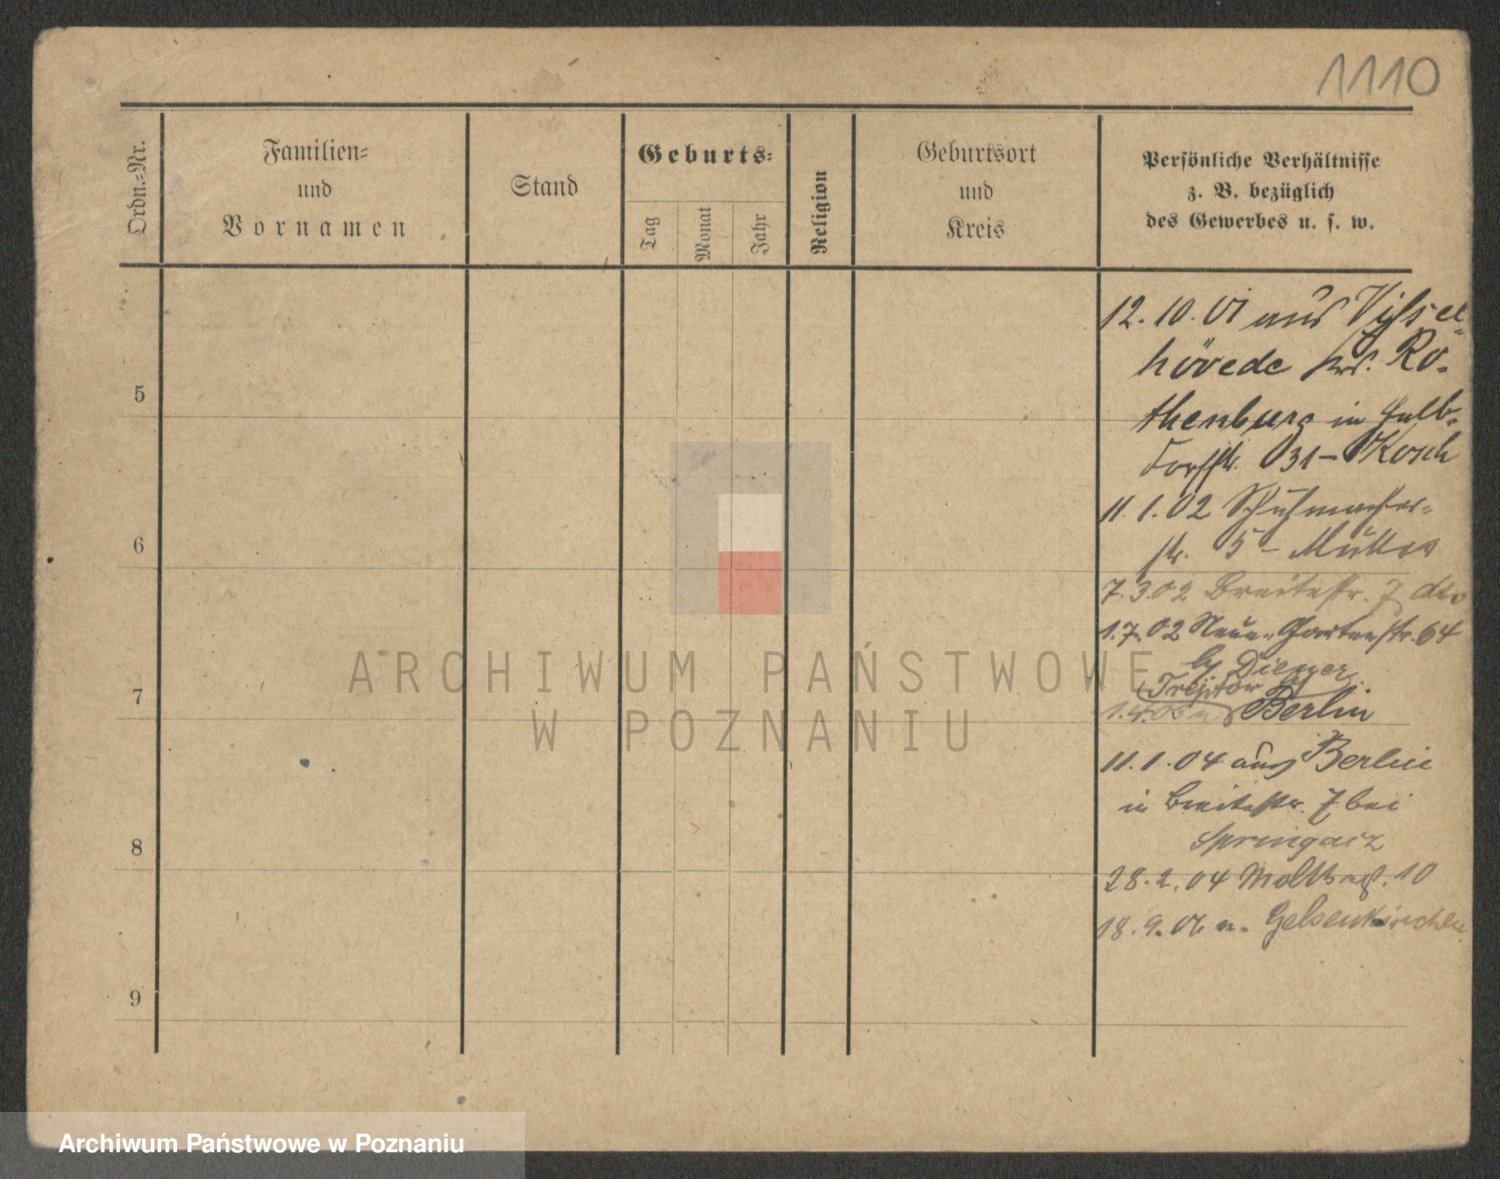 1110
Ordn.-Nr.
Familien-
und
Vornamen
Stand
Geburts-
Tag
Monat
Jahr
Religion
Geburtsort
und
Kreis
Persönliche Verhältnisse
z. B. bezüglich
des Gewerbes u. s. w.
12.10.01 aus Vissel-
hövede Krs. Ro-
thenburg in Halb-
dorfstr. 31 - Kosch
11.1.02 Schuhmacher-
str. 5 - Müller
7.3.02 Breitestr. 7
1.7.02 Neue Gartenstr. 64
Dieger
Treptow
Berlin
11.1.04 aus Berlin
in Breitestr. 7 bei
Springarz
28.2.04 10
18.9.06 n. Gelsenkirchen
5
6
7
8
9
ARCHIWUM PAŃSTWOWE
W POZNANIU
Archiwum Państwowe w Poznaniu